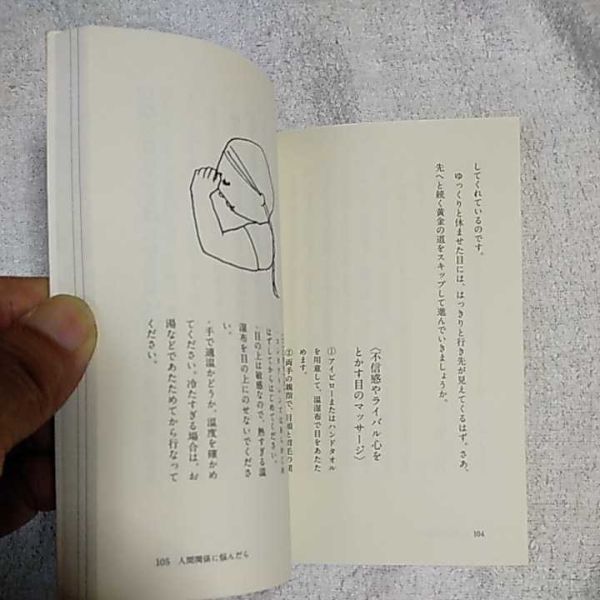 してくれているのです。
ゆっくりと休ませた目には、はっきりと行き先が見えてくるはず。さあ、
先へと続く黄金の道をスキップして進んでいきましょうか。
〈不信感やライバル心を
とかす目のマッサージ〉
①アイピローまたはハンドタオル
を用意して、温湿布で目をあたた
めます。
②両手の親指で、目頭と眉毛の
104
はずしてからはじめてください。
・目の上は敏感なので、熱すぎる温
湿布を目の上にのせないでくださ
い。
・手で適温かどうか、温度を確かめ
てください。冷たすぎる場合は、お
湯などであたためてから行なって
ください。
105 人間関係に悩んだら